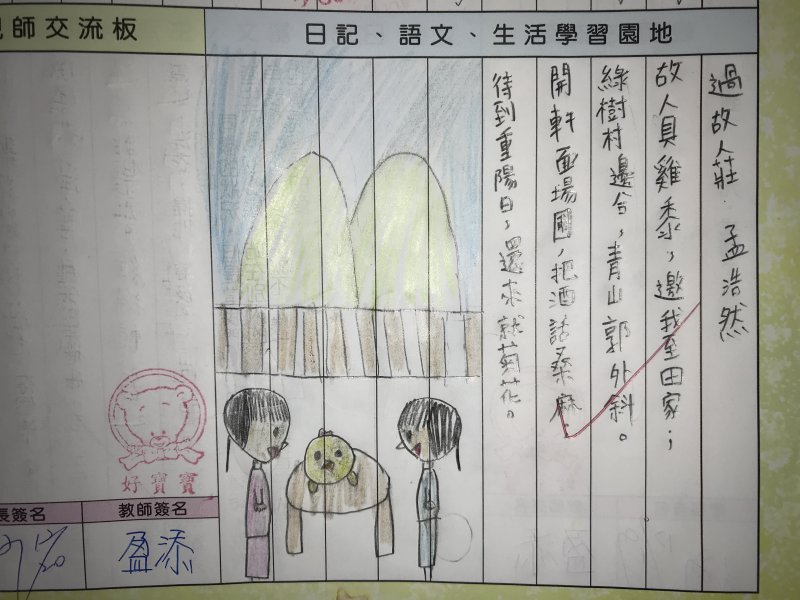 師交流板
日記、語文、生活學習園地
過故人莊 孟浩然
故人具雞黍，邀我至田家；
綠樹村邊合，青山郭外斜。
開軒面場圃，把酒話桑麻。
待到重陽日，還來就菊花。
好寶寶
長簽名
教師簽名
盈添